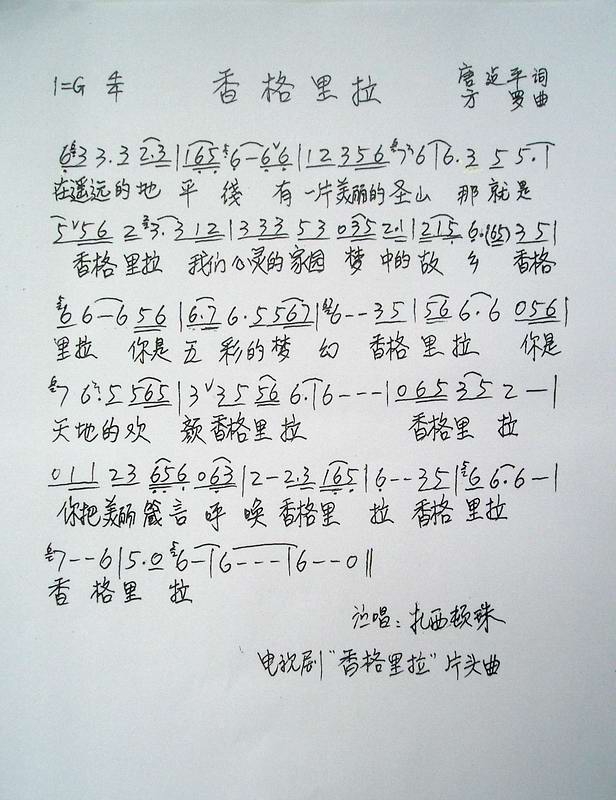 1=G 4/4 香格里拉 唐延平 词
方罗 曲
6 3 3.3 2.3 | 165 6-6 6 | 12 356 7 6 | 6.3 5 5. |
在遥远的地平线 有一片美丽的圣山 那就是
5 56 2 3.3 12 | 333 53 035 2.1 | 215 6.(65) 35 |
香格里拉 我们心灵的家园 梦中的故乡 香格
6 6-6 56 | 6.7 6.5 5567 | 6--35 | 56 6.6 056 |
里拉 你是五彩的梦幻 香格里拉 你是
7 6.5 565 | 3 35 56 6. | 6--- | 065 35 2- |
天地的欢颜香格里拉 香格里拉
011 23 656 063 | 2-2.3 165 | 6--35 | 6 6.6- |
你把美丽箴言呼唤香格里拉 香格里拉
7--6 | 5.0 6- | 6--- | 6--0 ||
香格里拉
演唱：扎西顿珠
电视剧"香格里拉"片头曲